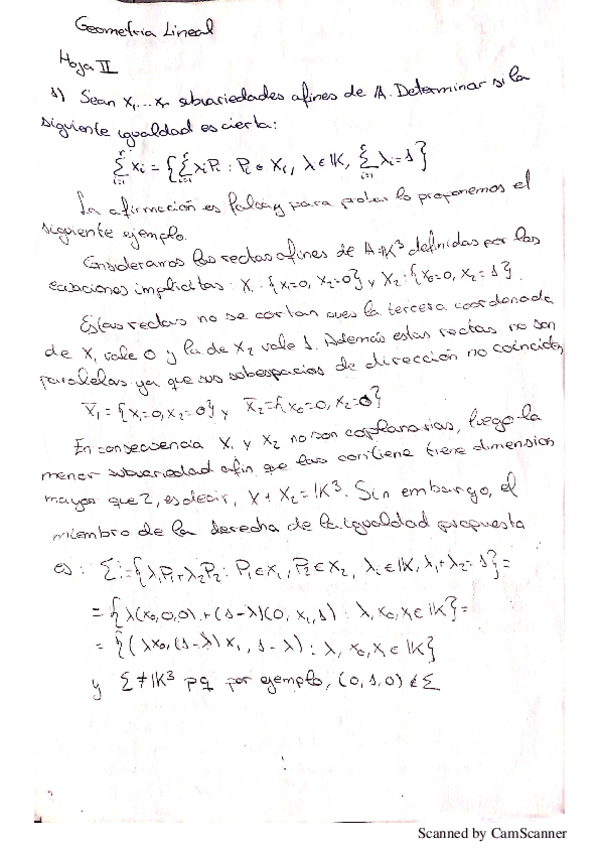 Geometria Lineal
Hoja II
1) Sean X₁...Xr subvariedades afines de A. Determinar si la
siguiente igualdad es cierta:
∑ᵢ₌₁ʳ Xi = {∑ᵢ₌₁ʳ λiPi : Pi ∈ Xi, λ ∈ IK, ∑ᵢ₌₁ʳ λi = 1}
La afirmación es falsa y para probar lo proponemos el
siguiente ejemplo.
Consideramos las rectas afines de A=IK³ definidas por las
ecuaciones implícitas: X₁: {x₁=0, x₂=0} y X₂: {x₀=0, x₂=1}.
Estas rectas no se cortan pues la tercera coordenada
de X₁ vale 0 y la de X₂ vale 1. Además estas rectas no son
paralelas ya que sus subespacios de dirección no coinciden
X̄₁ = {x₁=0, x₂=0} y X̄₂={x₀=0, x₂=0}
En consecuencia X₁ y X₂ no son coplanarias, luego la
menor subvariedad afín que las contiene tiene dimension
mayor que 2, es decir, X + X₂ = IK³. Sin embargo, el
miembro de la derecha de la igualdad propuesta
es: Σ:={λ₁P₁+λ₂P₂: P₁∈X₁, P₂∈X₂, λi∈IK, λ₁+λ₂=1}=
= {λ(x₀,0,0)+(1-λ)(0, x₁,1) : λ, x₀, x₁∈IK}=
= {(λx₀, (1-λ)x₁, 1-λ) : λ, x₀, x₁∈IK}
y Σ≠IK³ pq por ejemplo, (0,1,0)∉Σ
Scanned by CamScanner